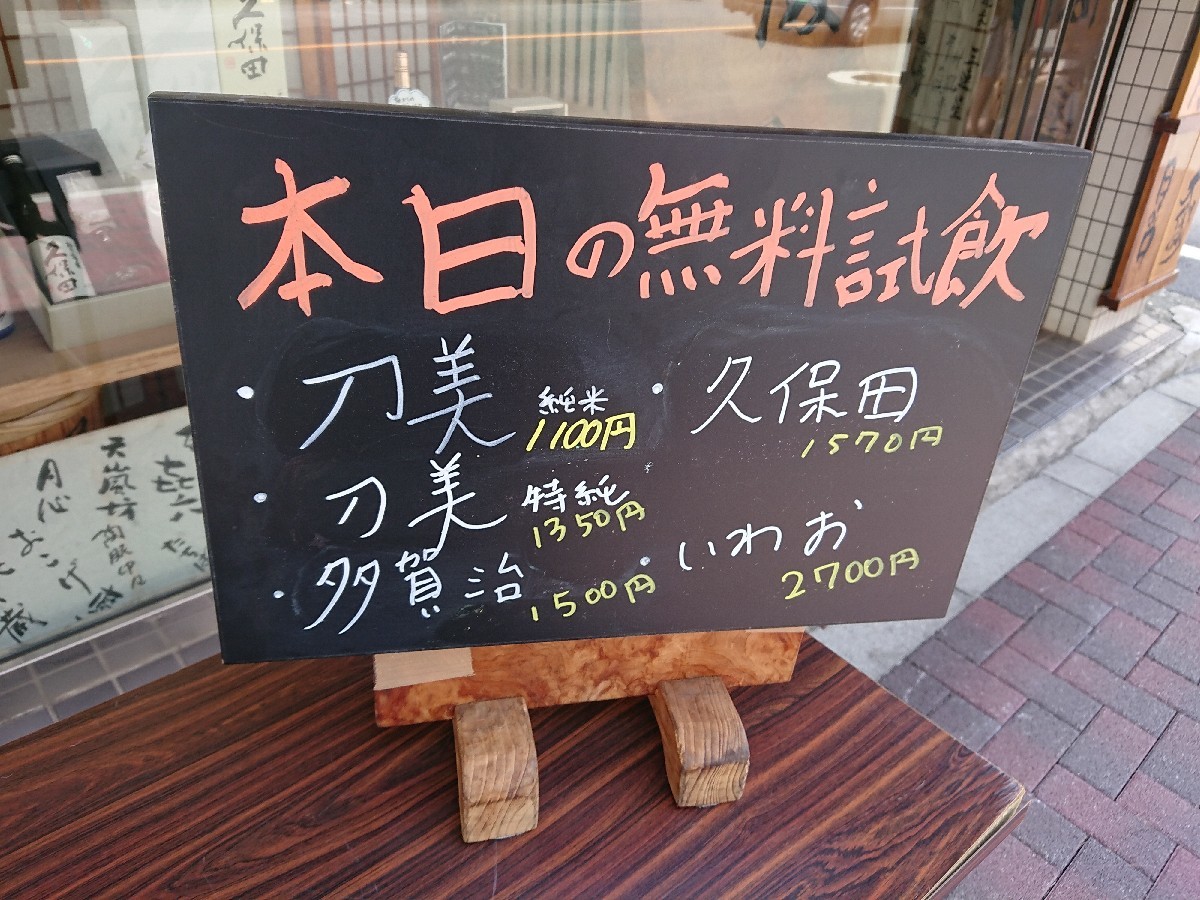 本日の無料試飲
・刀美 純米 1100円
・刀美 特純 1350円
・多賀治 1500円
・久保田 1570円
・いわお 2700円
久保田
久保田
天嵐坊
月心
おこげ
蔵